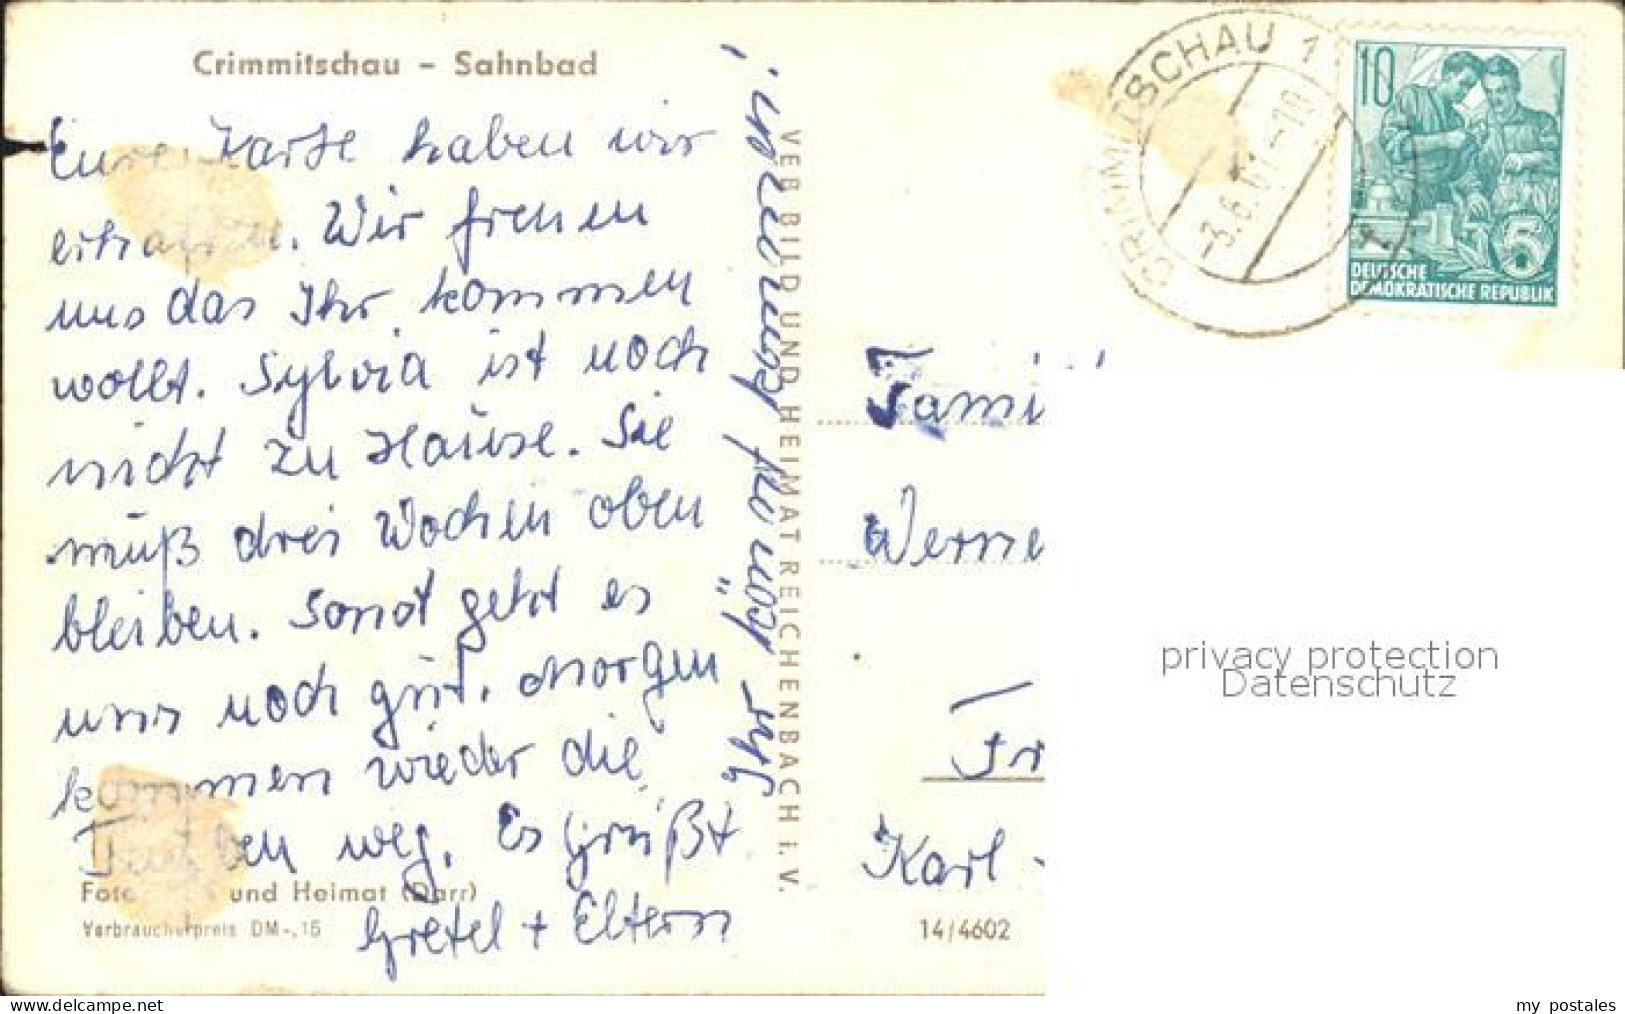 Crimmitschau - Sahnbad
Eure Karte haben wir
erhalten. Wir freuen
uns das Ihr kommen
wollt. Sylvia ist noch
nicht zu Hause. Sie
muß drei Wochen oben
bleiben. Sonst geht es
uns noch gut. Morgen
kommen wieder die
Tauben weg. Es Grüßt
Gretel + Eltern
Foto und Heimat (Darr)
Verbraucherpreis DM -,15
Ihr könnt
VEB BILD UND HEIMAT REICHENBACH i. V.
CRIMMITSCHAU 1
-3.6.61.-10
10
5
DEUTSCHE
DEMOKRATISCHE REPUBLIK
Fami
Werne
Karl -
14/4602
privacy protection
Datenschutz
my postales
https://www.delcampe.net